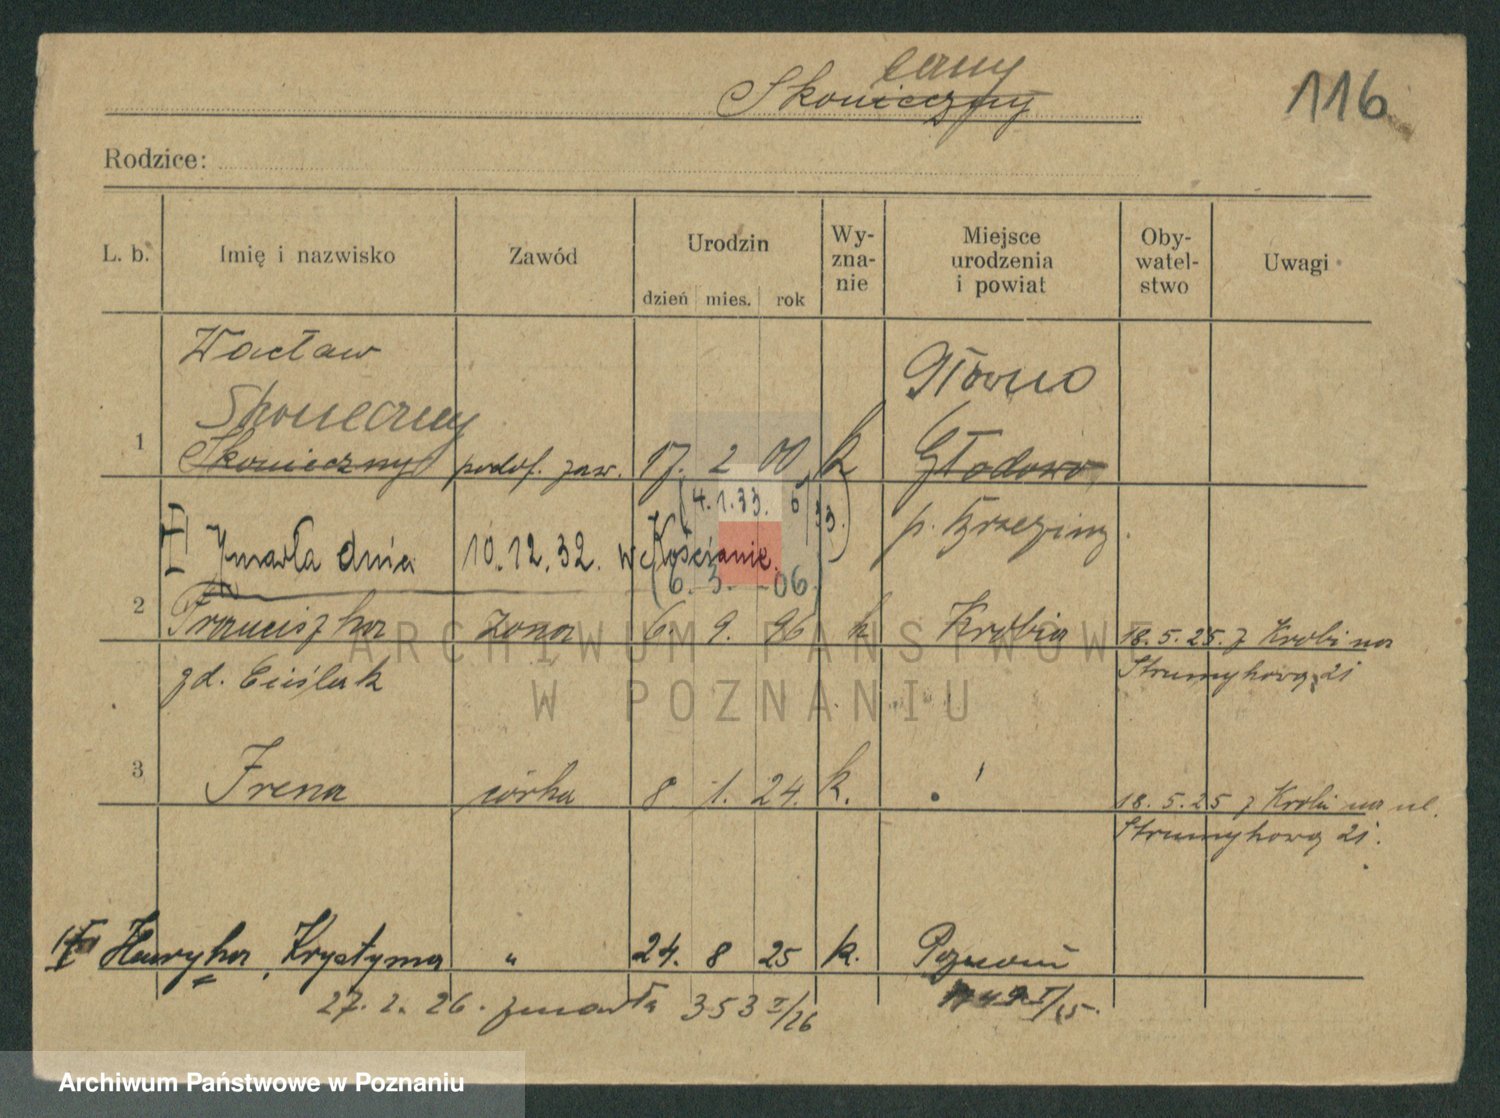 eczny
Skonieczny
116
Rodzice:
L. b. Imię i nazwisko Zawód Urodzin Wy- zna- nie Miejsce urodzenia i powiat Oby- watel- stwo Uwagi
dzień mies. rok
Wacław Głowno
Skoneczny
1 Skonieczny podof. zaw. 17. 2 00 k Głodowo
(4.1.33. 6/33.) p. Brzeziny.
Zmarła dnia 10.12.32. w Kościanie.
(6. 3. -06.)
2 Franciszka żona 6. 9. 96 k Krobia 18.5.25. z Krobi na
zd. Cieślak Strumykową 21
3 Irena córka 8. 1. 24. k. " 18.5.25 z Krobi na ul.
Strumykową 21.
Henryka, Krystyna " 24. 8 25 k. Poznań
27. 2. 26. zmarła 353 I/26
ARCHIWUM PAŃSTWOWE
W POZNANIU
Archiwum Państwowe w Poznaniu